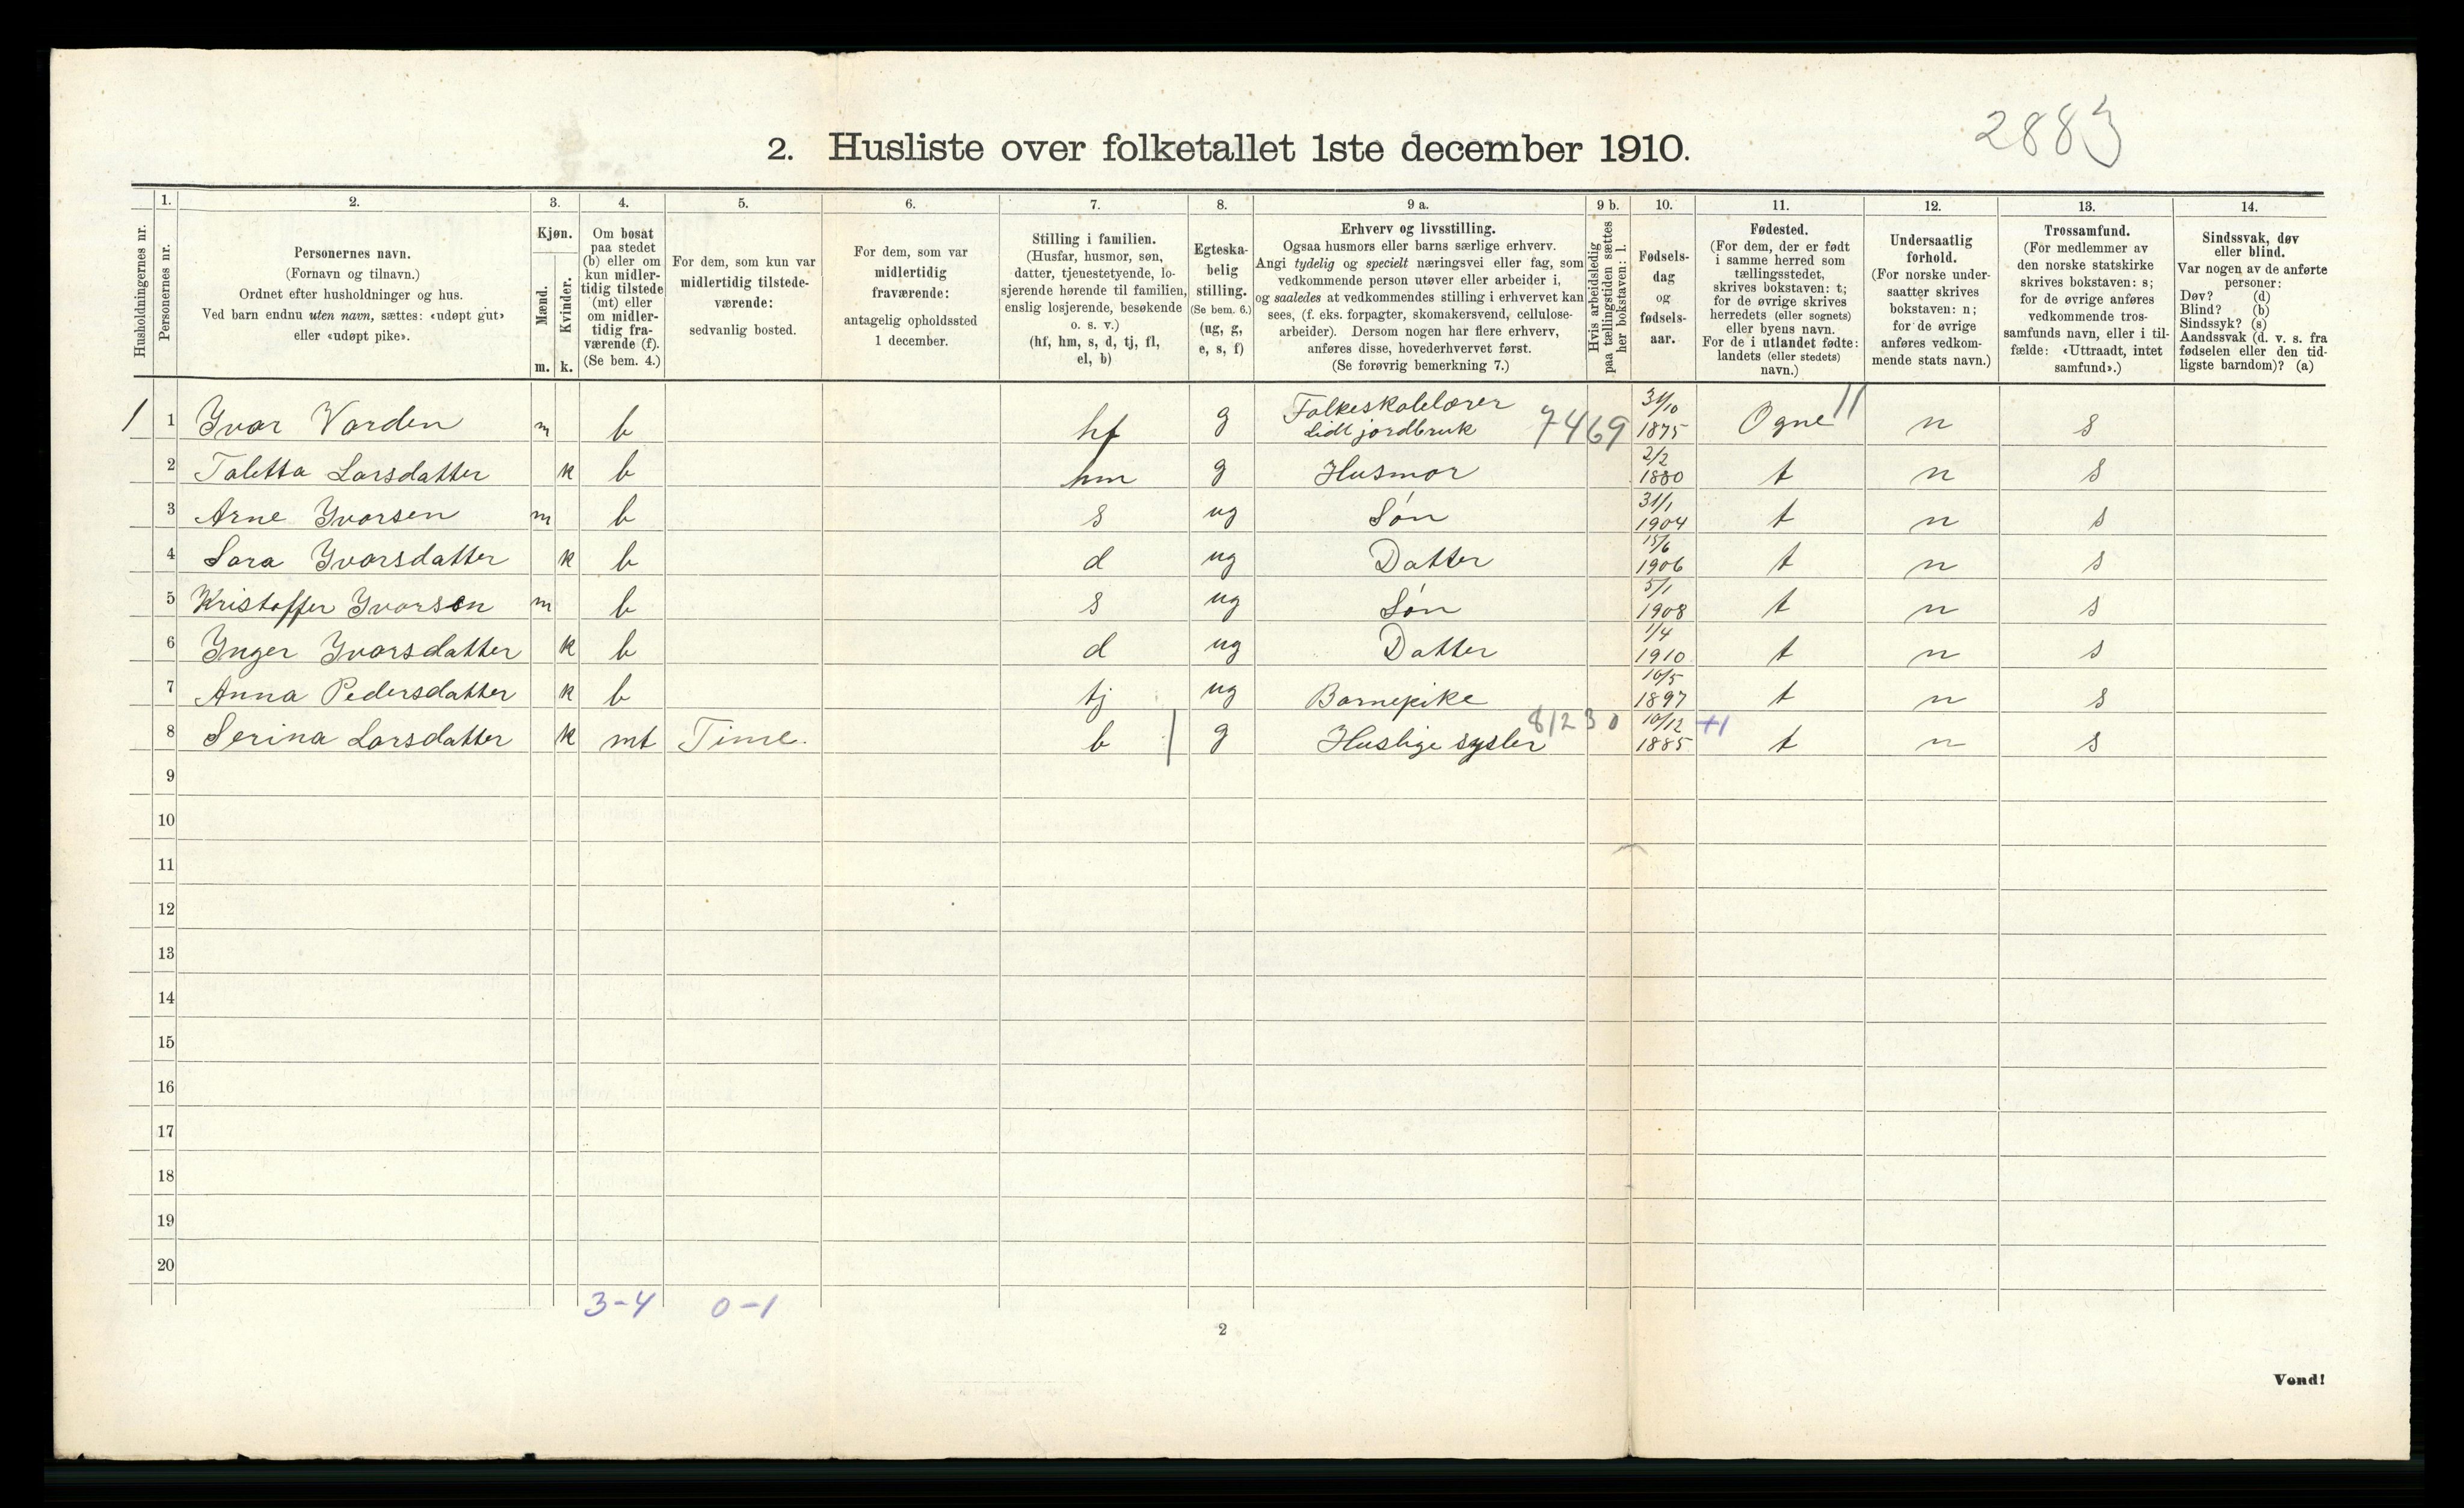 2883
2. Husliste over folketallet 1ste december 1910.
Husholdningernes nr.
1. Personernes nr.
2. Personernes navn.
(Fornavn og tilnavn.)
Ordnet efter husholdninger og hus.
Ved barn endnu uten navn, sættes: «udøpt gut»
eller «udøpt pike».
3. Kjøn.
Mænd. m.
Kvinder. k.
4. Om bosat
paa stedet
(b) eller om
kun midler-
tidig tilstede
(mt) eller
om midler-
tidig fra-
værende (f).
(Se bem. 4.)
5. For dem, som kun var
midlertidig tilstede-
værende:
sedvanlig bosted.
6. For dem, som var
midlertidig
fraværende:
antagelig opholdssted
1 december.
7. Stilling i familien.
(Husfar, husmor, søn,
datter, tjenestetyende, lo-
sjerende hørende til familien,
enslig losjerende, besøkende
o. s. v.)
(hf, hm, s, d, tj, fl,
el, b)
8. Egteska-
belig
stilling.
(Se bem. 6.)
(ug, g,
e, s, f)
9 a. Erhverv og livsstilling.
Ogsaa husmors eller barns særlige erhverv.
Angi tydelig og specielt næringsvei eller fag, som
vedkommende person utøver eller arbeider i,
og saaledes at vedkommendes stilling i erhvervet kan
sees, (f. eks. forpagter, skomakersvend, cellulose-
arbeider). Dersom nogen har flere erhverv,
anføres disse, hovederhvervet først.
(Se forøvrig bemerkning 7.)
9 b. Hvis arbeidsledig
paa tællingstiden sættes
her bokstaven: l.
10. Fødsels-
dag
og
fødsels-
aar.
11. Fødested.
(For dem, der er født
i samme herred som
tællingsstedet,
skrives bokstaven: t;
for de øvrige skrives
herredets (eller sognets)
eller byens navn.
For de i utlandet fødte:
landets (eller stedets)
navn.)
12. Undersaatlig
forhold.
(For norske under-
saatter skrives
bokstaven: n;
for de øvrige
anføres vedkom-
mende stats navn.)
13. Trossamfund.
(For medlemmer av
den norske statskirke
skrives bokstaven: s;
for de øvrige anføres
vedkommende tros-
samfunds navn, eller i til-
fælde: «Uttraadt, intet
samfund».)
14. Sindssvak, døv
eller blind.
Var nogen av de anførte
personer:
Døv? (d)
Blind? (b)
Sindssyk? (s)
Aandssvak (d. v. s. fra
fødselen eller den tid-
ligste barndom)? (a)
1 1 Yvar Varden m b hf g Folkeskolelærer lidt jordbruk 7469 31/10 1875 Ogne 11 n s
2 Taletta Larsdatter k b hm g Husmor 2/2 1880 t n s
3 Arne Yvarsen m b s ug Søn 31/1 1904 t n s
4 Sara Yvarsdatter k b d ug Datter 15/6 1906 t n s
5 Kristoffer Yvarsen m b s ug Søn 5/1 1908 t n s
6 Inger Yvarsdatter k b d ug Datter 1/4 1910 t n s
7 Anna Pedersdatter k b tj ug Barnepike 10/5 1897 t n s
8 Serina Larsdatter k mt Time. b g Huslige sysler 81230 10/12 1885 +1 t n s
9
10
11
12
13
14
15
16
17
18
19
20
3-4 0-1
2
Vend!